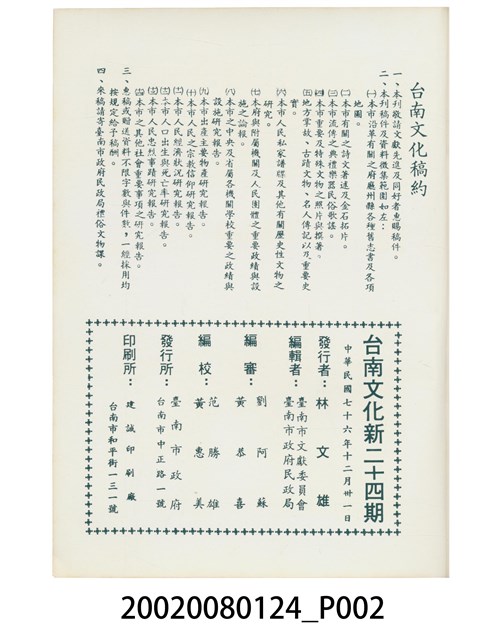 台南文化稿約
一、本刊敬請文獻先進及同好者惠賜稿件。
二、本刊稿件及資料徵集範圍如左：
㈠本市沿革有關之府廳州縣各種舊志書及各項
地圖。
㈡本市有關之詩文著述及金石拓片。
㈢本市流傳之典禮樂器民俗歌謠。
㈣本市重要及特殊文物之照片與撰著。
㈤地方掌故、古蹟文物、名人傳記以及重要史
實。
㈥本市人民私家譜牒及其他有關歷史性文物之
研究。
㈦本府與附屬機關及人民團體之重要政績與設
施之論報。
㈧本市之中央及省屬各機關學校重要之政績與
設施研究報告。
㈨本市出產主要物產研究報告。
㈩本市人民之宗教信仰研究報告。
本市人民經濟狀況研究報告。
本市人口出生與死亡率研究報告。
本市人民忠烈事蹟研究報告。
本市之其他社會重要事項之研究報告。
三、惠稿或贈送資料不限字數與件數，一經採用均
按規定給予稿酬。
四、來稿請寄臺南市政府民政局禮俗文物課。
台南文化新二十四期
中華民國七十六年十二月卅一日
發行者：林文雄
編輯者：臺南市文獻委員會
臺南市政府民政局
編審：劉阿蘇
黃恭喜
編校：范勝雄
黃惠美
發行所：臺南市政府
台南市中正路一號
印刷所：建誠印刷廠
台南市和平街一三一號
20020080124_P002